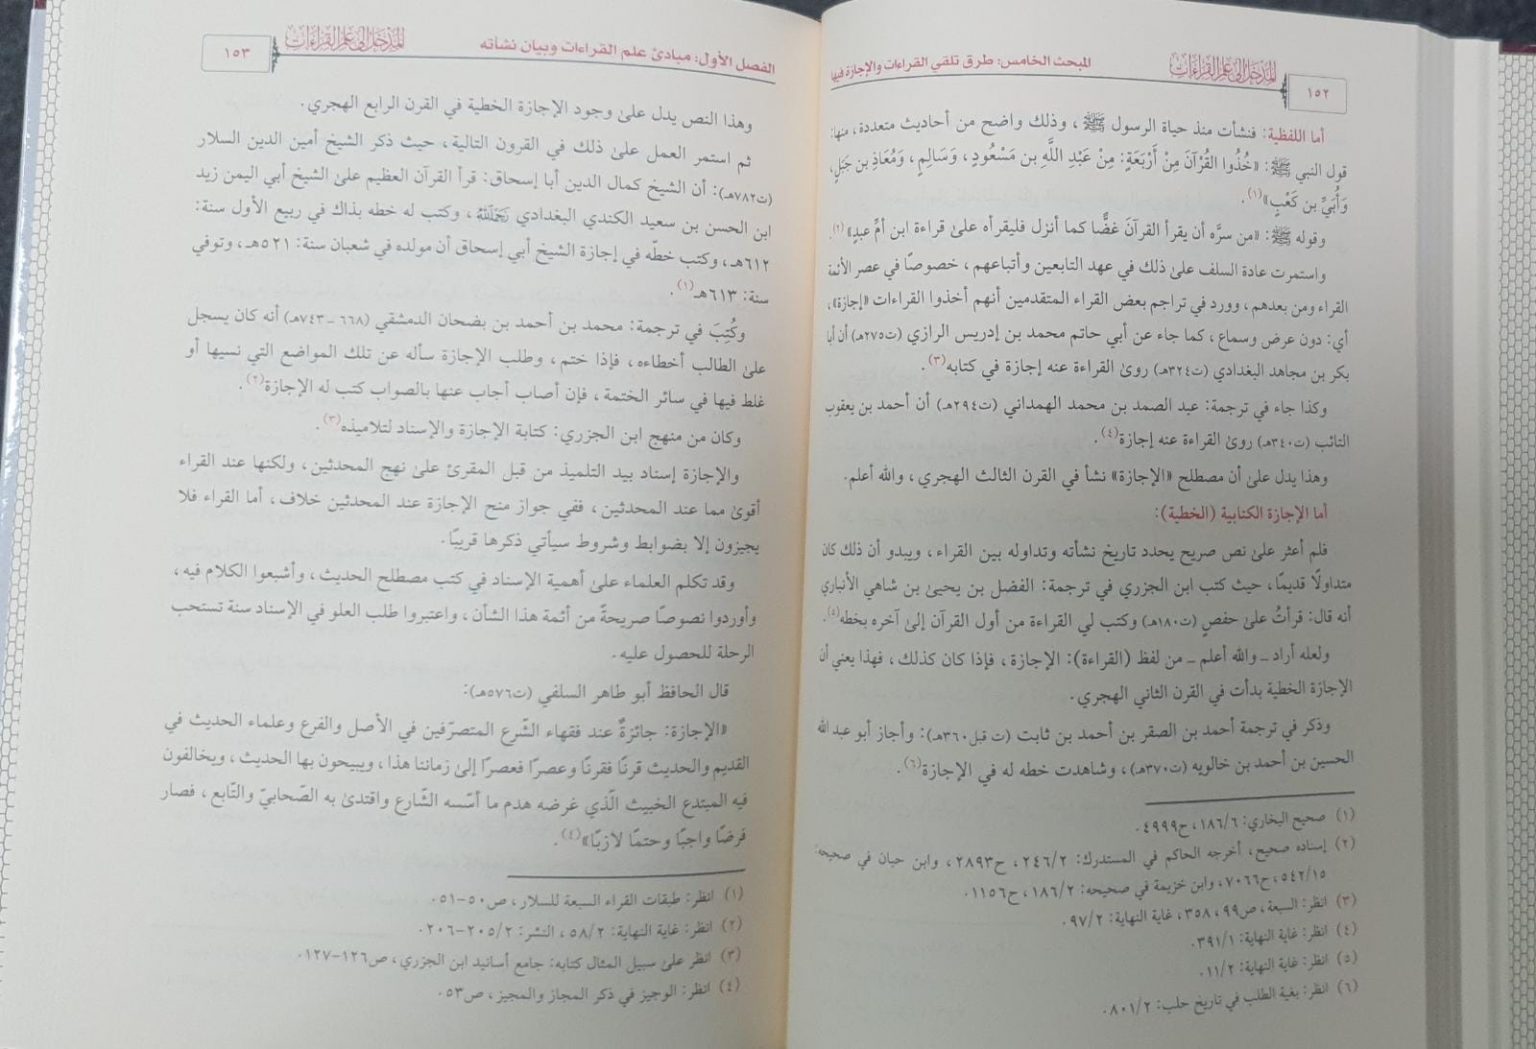 ١٥٢
المدخل إلى علم القراءات
المبحث الخامس: طرق تلقي القراءات والإجازة فيها
أما اللفظية: فنشأت منذ حياة الرسول ﷺ، وذلك واضح من أحاديث متعددة، منها:
قول النبي ﷺ: «خُذُوا القُرْآنَ مِنْ أَرْبَعَةٍ: مِنْ عَبْدِ اللَّهِ بن مَسْعُودٍ، وَسَالِمٍ، وَمُعَاذِ بن جَبَلٍ،
وَأُبَيِّ بن كَعْبٍ»(١).
وقوله ﷺ: «من سرَّه أن يقرأ القرآنَ غضًّا كما أنزل فليقرأه علىٰ قراءة ابن أمِّ عبدٍ»(٢).
واستمرت عادة السلف علىٰ ذلك في عهد التابعين وأتباعهم، خصوصًا في عصر الأئمة
القراء ومن بعدهم، وورد في تراجم بعض القراء المتقدمين أنهم أخذوا القراءات «إجازة»،
أي: دون عرض وسماع، كما جاء عن أبي حاتم محمد بن إدريس الرازي (ت٢٧٥هـ) أن أبا
بكر بن مجاهد البغدادي (ت٣٢٤هـ) روىٰ القراءة عنه إجازة في كتابه(٣).
وكذا جاء في ترجمة: عبد الصمد بن محمد الهمداني (ت٢٩٤هـ) أن أحمد بن يعقوب
التائب (ت٣٤٠هـ) روىٰ القراءة عنه إجازة(٤).
وهذا يدل علىٰ أن مصطلح «الإجازة» نشأ في القرن الثالث الهجري، والله أعلم.
أما الإجازة الكتابية (الخطية):
فلم أعثر علىٰ نص صريح يحدد تاريخ نشأته وتداوله بين القراء، ويبدو أن ذلك كان
متداولًا قديمًا، حيث كتب ابن الجزري في ترجمة: الفضل بن يحيىٰ بن شاهي الأنباري
أنه قال: قرأتُ علىٰ حفصٍ (ت١٨٠هـ) وكتب لي القراءة من أول القرآن إلىٰ آخره بخطه(٥).
ولعله أراد ـ والله أعلم ـ من لفظ (القراءة): الإجازة، فإذا كان كذلك، فهذا يعني أن
الإجازة الخطية بدأت في القرن الثاني الهجري.
وذكر في ترجمة أحمد بن الصقر بن أحمد بن ثابت (ت قبل ٣٦٠هـ): وأجاز أبو عبد الله
الحسين بن أحمد بن خالويه (ت٣٧٠هـ)، وشاهدت خطه له في الإجازة(٦).
(١) صحيح البخاري: ١٨٦/٦، ح٤٩٩٩.
(٢) إسناده صحيح، أخرجه الحاكم في المستدرك: ٢٤٦/٢، ح٢٨٩٣، وابن حبان في صحيحه:
٥٤٢/١٥، ح٧٠٦٦، وابن خزيمة في صحيحه: ١٨٦/٢، ح١١٥٦.
(٣) انظر: السبعة، ص٩٩، ٣٥٨، غاية النهاية: ٩٧/٢.
(٤) انظر: غاية النهاية: ٣٩١/١.
(٥) انظر: غاية النهاية: ١١/٢.
(٦) انظر: بغية الطلب في تاريخ حلب: ٨٠١/٢.
الفصل الأول: مبادئ علم القراءات وبيان نشأته
المدخل إلى علم القراءات
١٥٣
وهذا النص يدل علىٰ وجود الإجازة الخطية في القرن الرابع الهجري.
ثم استمر العمل علىٰ ذلك في القرون التالية، حيث ذكر الشيخ أمين الدين السلار
(ت٧٨٢هـ): أن الشيخ كمال الدين أبا إسحاق: قرأ القرآن العظيم علىٰ الشيخ أبي اليمن زيد
ابن الحسن بن سعيد الكندي البغدادي رحمه الله، وكتب له خطه بذاك في ربيع الأول سنة:
٦١٢هـ، وكتب خطّه في إجازة الشيخ أبي إسحاق أن مولده في شعبان سنة: ٥٢١هـ، وتوفي
سنة: ٦١٣هـ(١).
وكُتِبَ في ترجمة: محمد بن أحمد بن بضحان الدمشقي (٦٦٨ – ٧٤٣هـ) أنه كان يسجل
علىٰ الطالب أخطاءه، فإذا ختم، وطلب الإجازة سأله عن تلك المواضع التي نسيها أو
غلط فيها في سائر الختمة، فإن أصاب أجاب عنها بالصواب كتب له الإجازة(٢).
وكان من منهج ابن الجزري: كتابة الإجازة والإسناد لتلاميذه(٣).
والإجازة إسناد بيد التلميذ من قبل المقرئ علىٰ نهج المحدثين، ولكنها عند القراء
أقوىٰ مما عند المحدثين، ففي جواز منح الإجازة عند المحدثين خلاف، أما القراء فلا
يجيزون إلا بضوابط وشروط سيأتي ذكرها قريبًا.
وقد تكلم العلماء علىٰ أهمية الإسناد في كتب مصطلح الحديث، وأشبعوا الكلام فيه،
وأوردوا نصوصًا صريحةً من أئمة هذا الشأن، واعتبروا طلب العلو في الإسناد سنة تستحب
الرحلة للحصول عليه.
قال الحافظ أبو طاهر السلفي (ت٥٧٦هـ):
«الإجازة: جائزةٌ عند فقهاء الشّرع المتصرّفين في الأصل والفرع وعلماء الحديث في
القديم والحديث قرنًا فقرنًا وعصرًا فعصرًا إلىٰ زماننا هذا، ويبيحون بها الحديث، ويخالفون
فيه المبتدع الخبيث الّذي غرضه هدم ما أسّسه الشّارع واقتدىٰ به الصّحابيّ والتّابع، فصار
فرضًا واجبًا وحتمًا لازبًا»(٤).
(١) انظر: طبقات القراء السبعة للسلار، ص٥٠-٥١.
(٢) انظر: غاية النهاية: ٥٨/٢، النشر: ٢٠٥/٢-٢٠٦.
(٣) انظر علىٰ سبيل المثال كتابه: جامع أسانيد ابن الجزري، ص١٢٦-١٢٧.
(٤) انظر: الوجيز في ذكر المجاز والمجيز، ص٥٣.